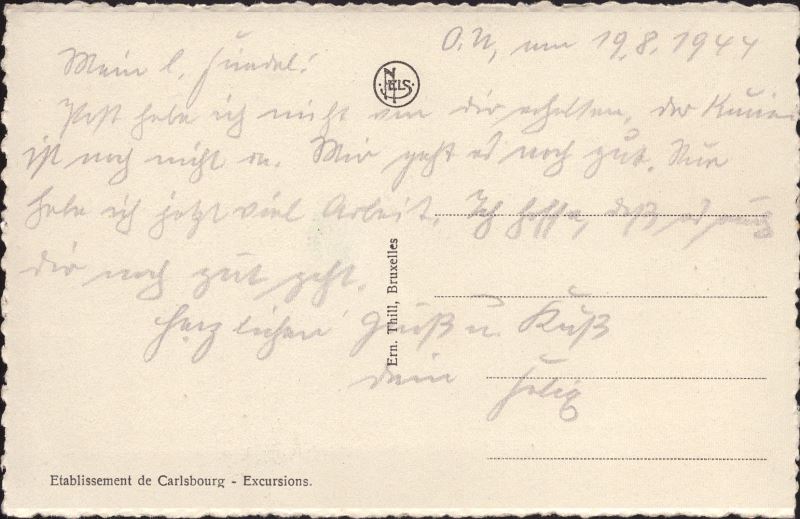 O.U, am 19.8.1944
Mein l.
NELS
Post habe ich nicht von dir erhalten, der Kurier
ist noch nicht da. Mir geht es noch gut. Nur
habe ich jetzt viel Arbeit. Ich hoffe, daß es auch
dir noch gut geht.
Herzlichen Gruß u. Kuß
dein Felix
Ern. Thill, Bruxelles
Etablissement de Carlsbourg - Excursions.